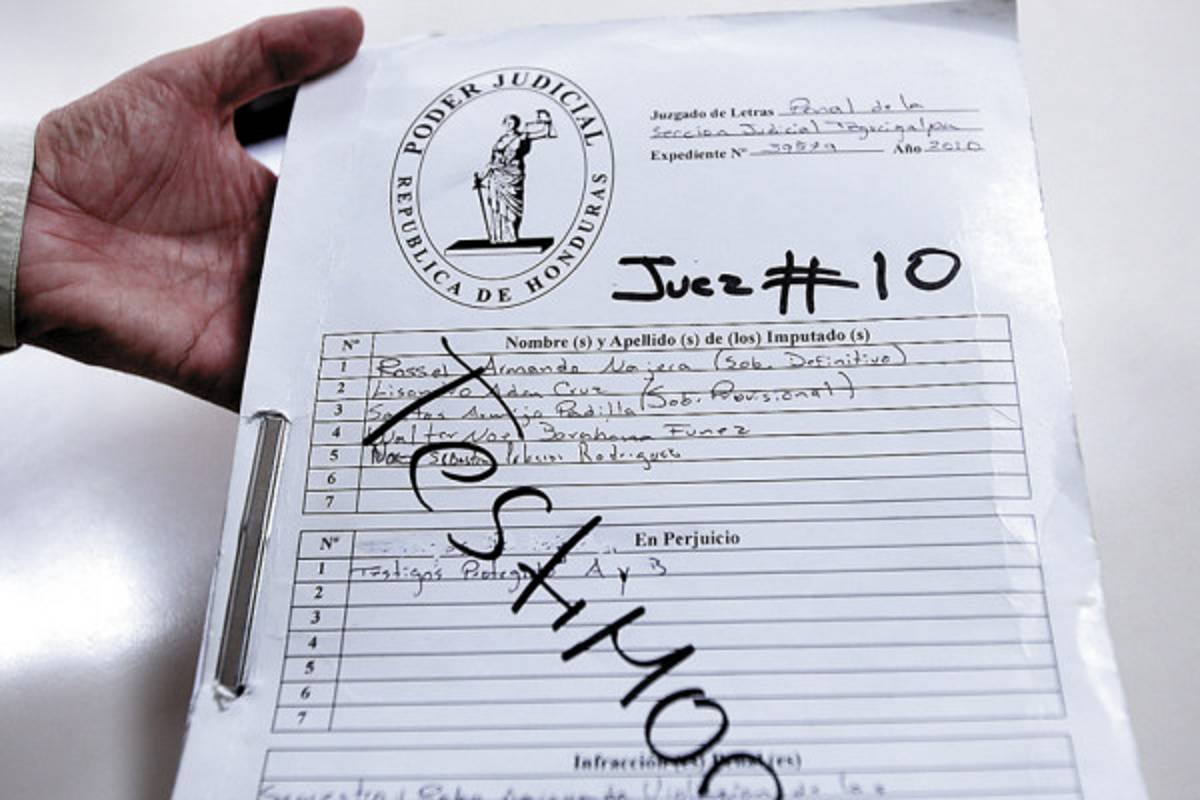 PODER JUDICIAL
REPUBLICA DE HONDURAS
Juzgado de Letras Penal de la
Seccion Judicial Tegucigalpa
Expediente Nº 39579 Año 2010
Juez # 10
Nº Nombre (s) y Apellido (s) de (los) Imputado (s)
1 Rossel Armando Najera (Sob. Definitivo)
2 Lisandro Aden Cruz (Sob. Provisional)
3 Santos Padilla
4 Walter Noel Funez
5 Rodriguez
6
7
Nº En Perjuicio
1 Testigos Protegidos A y B
2
3
4
5
6
7
Infracción Penal (es)
Secuestro, Robo Violacion de la